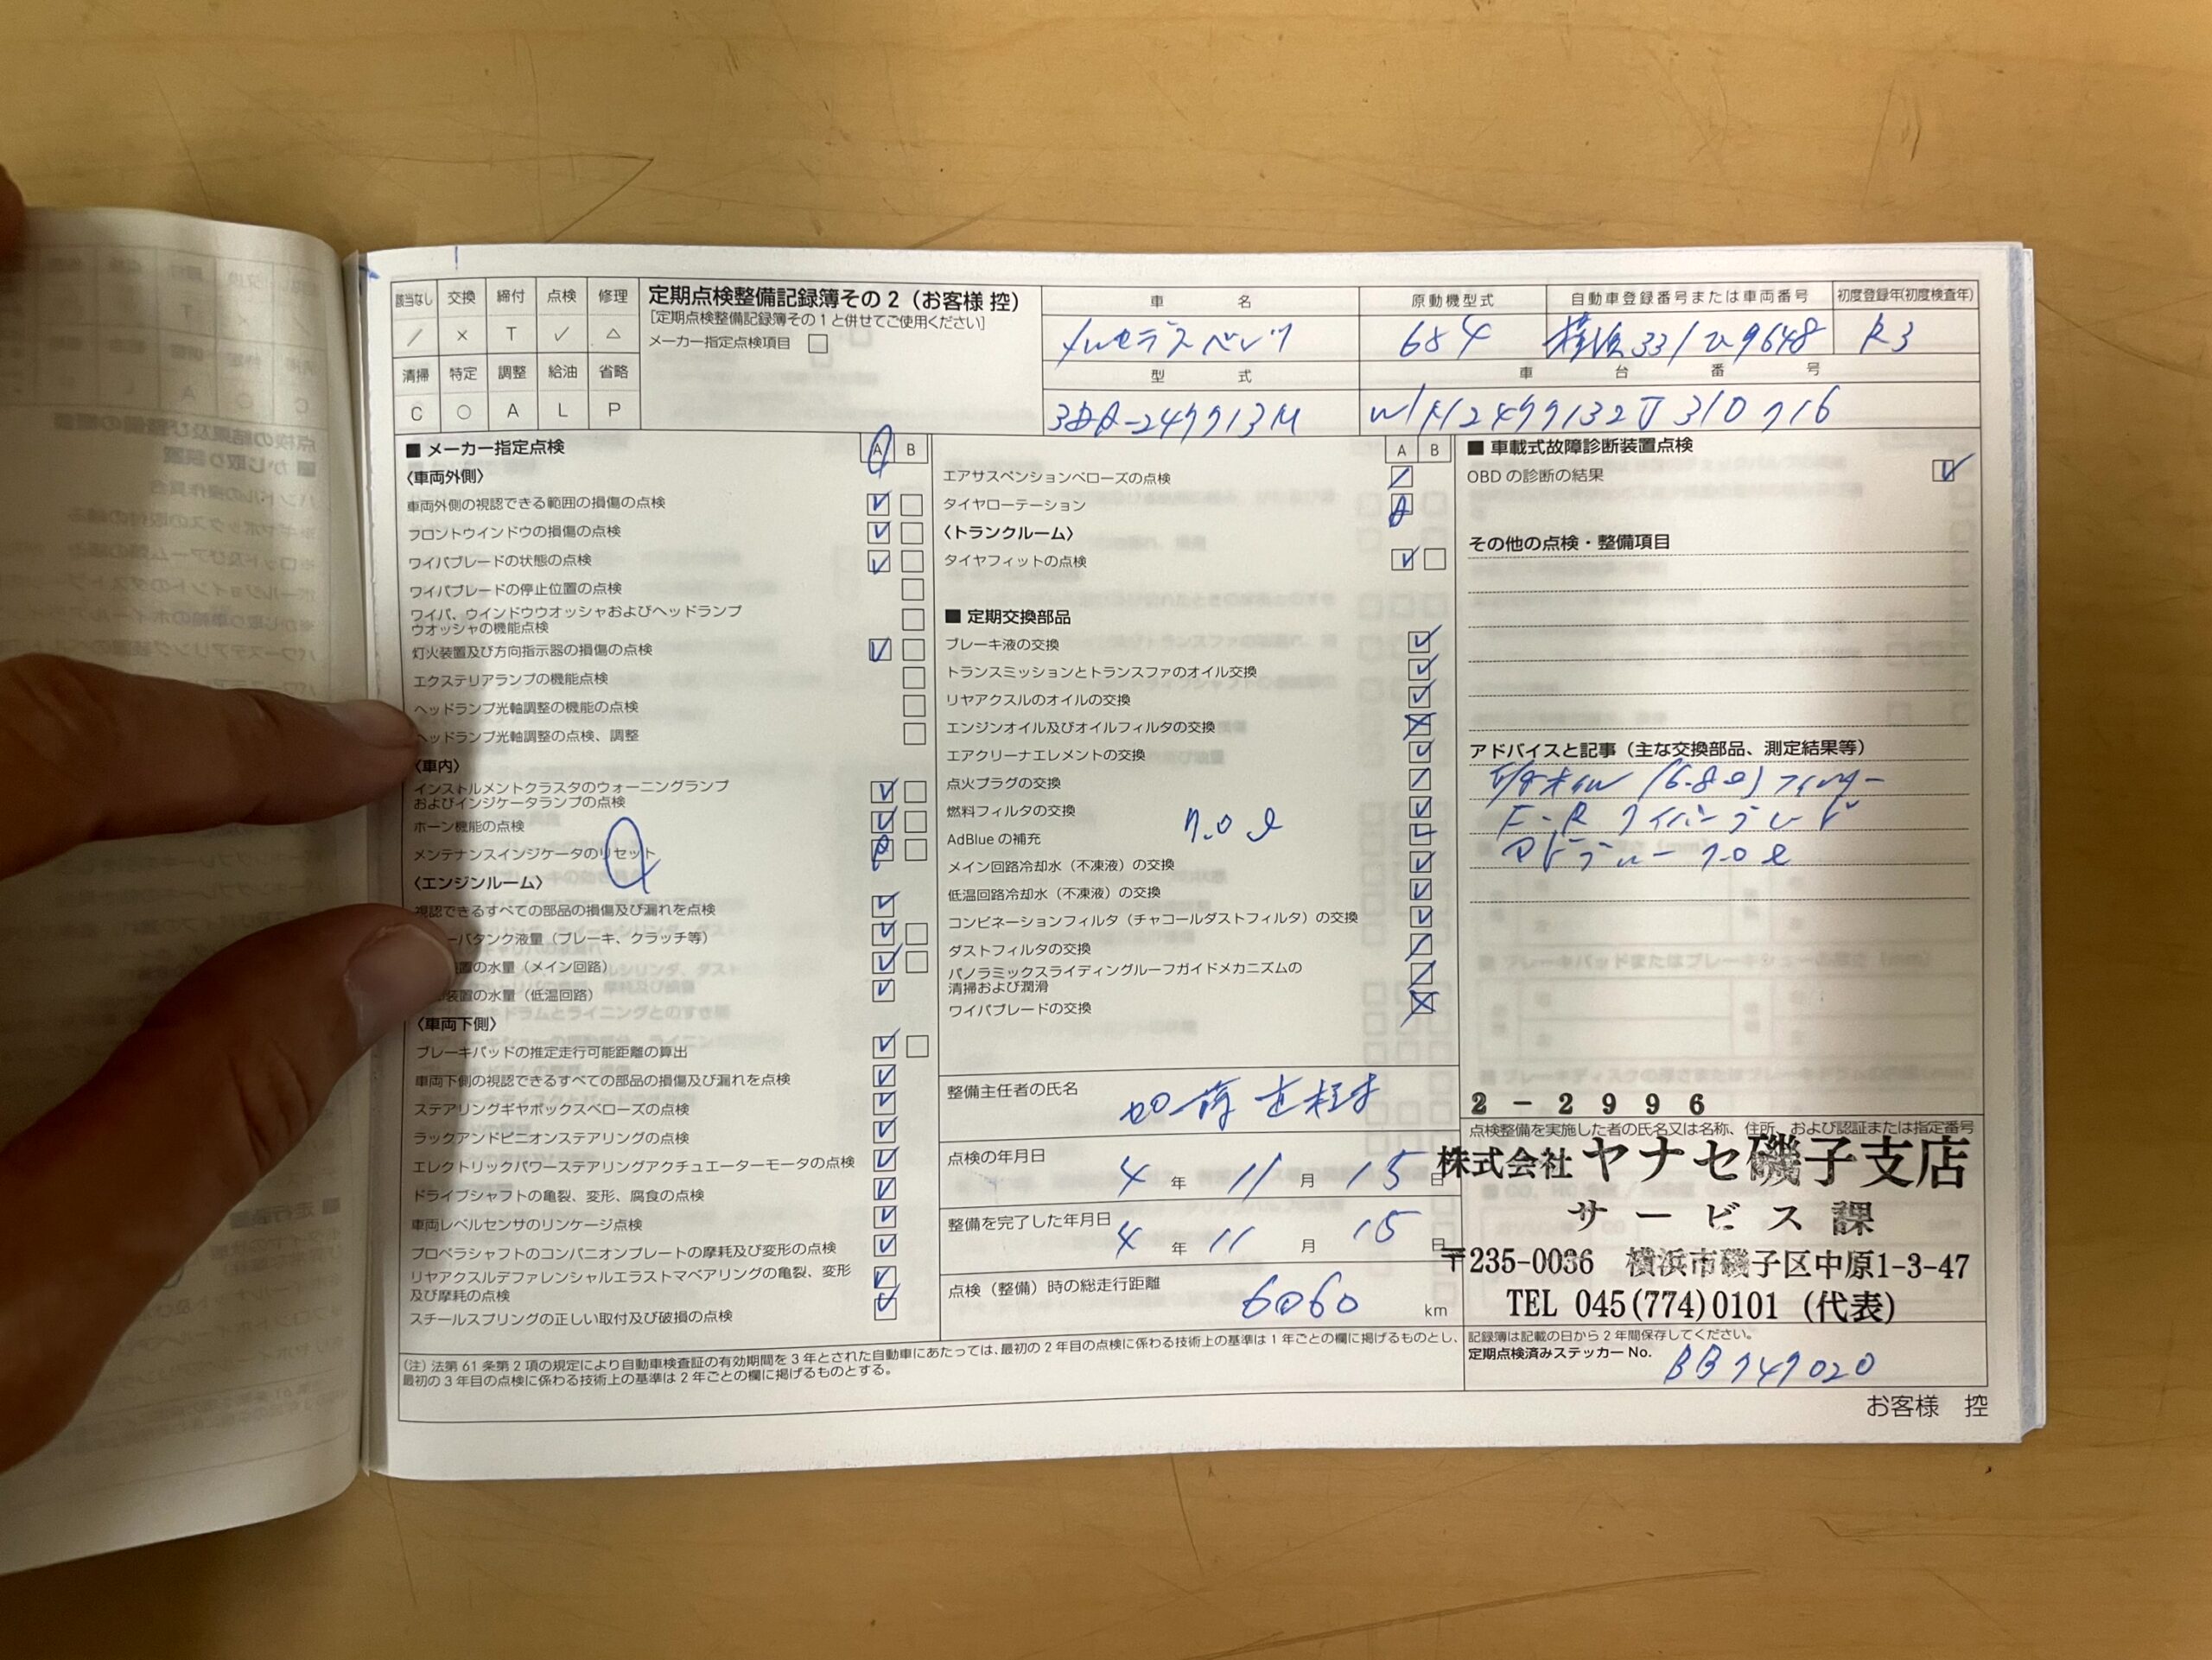 該当なし 交換 締付 点検 修理
／ × T ✓ △
清掃 特定 調整 給油 省略
C ○ A L P
定期点検整備記録簿その2（お客様 控）
[定期点検整備記録簿その1と併せてご使用ください]
メーカー指定点検項目
車名 原動機型式 自動車登録番号または車両番号 初度登録年(初度検査年)
メルセデスベンツ 654 横浜331 9648 R3
型式 車台番号
3DA-247713M W1N2477132J310716
■ メーカー指定点検 A B
〈車両外側〉
車両外側の視認できる範囲の損傷の点検
フロントウインドウの損傷の点検
ワイパブレードの状態の点検
ワイパブレードの停止位置の点検
ワイパ、ウインドウウオッシャおよびヘッドランプ
ウオッシャの機能点検
灯火装置及び方向指示器の損傷の点検
エクステリアランプの機能点検
ヘッドランプ光軸調整の機能の点検
ヘッドランプ光軸調整の点検、調整
〈車内〉
インストルメントクラスタのウォーニングランプ
およびインジケータランプの点検
ホーン機能の点検
メンテナンスインジケータのリセット
〈エンジンルーム〉
視認できるすべての部品の損傷及び漏れを点検
バタンク液量（ブレーキ、クラッチ等）
装置の水量（メイン回路）
装置の水量（低温回路）
〈車両下側〉
ブレーキパッドの推定走行可能距離の算出
車両下側の視認できるすべての部品の損傷及び漏れを点検
ステアリングギヤボックスベローズの点検
ラックアンドピニオンステアリングの点検
エレクトリックパワーステアリングアクチュエーターモータの点検
ドライブシャフトの亀裂、変形、腐食の点検
車両レベルセンサのリンケージ点検
プロペラシャフトのコンパニオンプレートの摩耗及び変形の点検
リヤアクスルデファレンシャルエラストマベアリングの亀裂、変形
及び摩耗の点検
スチールスプリングの正しい取付及び破損の点検
A B
エアサスペンションベローズの点検
タイヤローテーション
〈トランクルーム〉
タイヤフィットの点検
■ 定期交換部品
ブレーキ液の交換
トランスミッションとトランスファのオイル交換
リヤアクスルのオイルの交換
エンジンオイル及びオイルフィルタの交換
エアクリーナエレメントの交換
点火プラグの交換
燃料フィルタの交換
AdBlue の補充 7.0ℓ
メイン回路冷却水（不凍液）の交換
低温回路冷却水（不凍液）の交換
コンビネーションフィルタ（チャコールダストフィルタ）の交換
ダストフィルタの交換
パノラミックスライディングルーフガイドメカニズムの
清掃および潤滑
ワイパブレードの交換
整備主任者の氏名
点検の年月日 4年 11月 15日
整備を完了した年月日 4年 11月 15日
点検（整備）時の総走行距離 6060 km
■ 車載式故障診断装置点検
OBD の診断の結果
その他の点検・整備項目
アドバイスと記事（主な交換部品、測定結果等）
オイル (6.8ℓ) フィルター
F・R ワイパーブレード
アドブルー 7.0ℓ
2-2996
点検整備を実施した者の氏名又は名称、住所、および認証または指定番号
株式会社ヤナセ磯子支店
サービス課
〒235-0036 横浜市磯子区中原1-3-47
TEL 045(774)0101 (代表)
記録簿は記載の日から2年間保存してください。
定期点検済みステッカー No. BB747020
(注) 法第61条第2項の規定により自動車検査証の有効期間を3年とされた自動車にあたっては、最初の2年目の点検に係わる技術上の基準は1年ごとの欄に掲げるものとし、
最初の3年目の点検に係わる技術上の基準は2年ごとの欄に掲げるものとする。
お客様 控